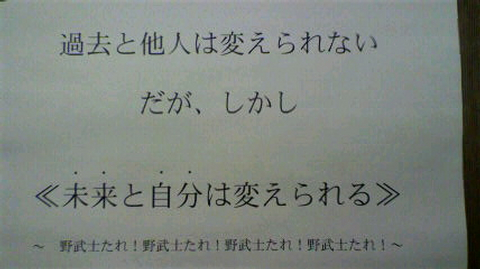 過去と他人は変えられない
だが、しかし
≪未来と自分は変えられる≫
～ 野武士たれ！野武士たれ！野武士たれ！野武士たれ！～